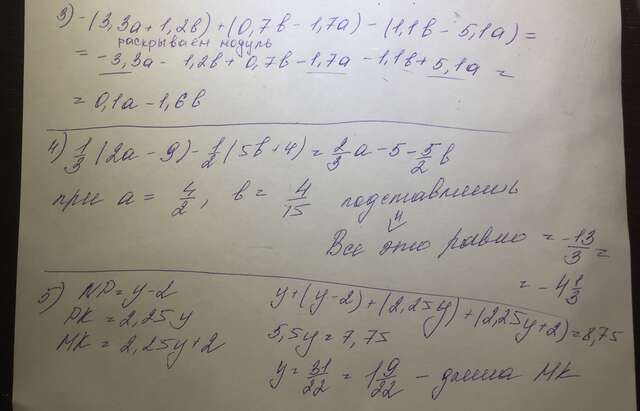 3) -(3,3a+1,2в)+(0,7в-1,7a)-(1,1в-5,1a)=
раскрываем модуль
= -3,3a-1,2в+0,7в-1,7a-1,1в+5,1a=
= 0,1a-1,6в
4) 1/3(2a-9)-1/2(5в+4)=2/3a-5-5/2в
при a=4/2, в=4/15 подставляешь
и
Все это равно = -13/3=
= -4 1/3
5) NP=y-2
PK=2,25y
MK=2,25y+2
y+(y-2)+(2,25y)+(2,25y+2)=8,75
5,5y=7,75
y=31/22=1 9/22 - длина MK